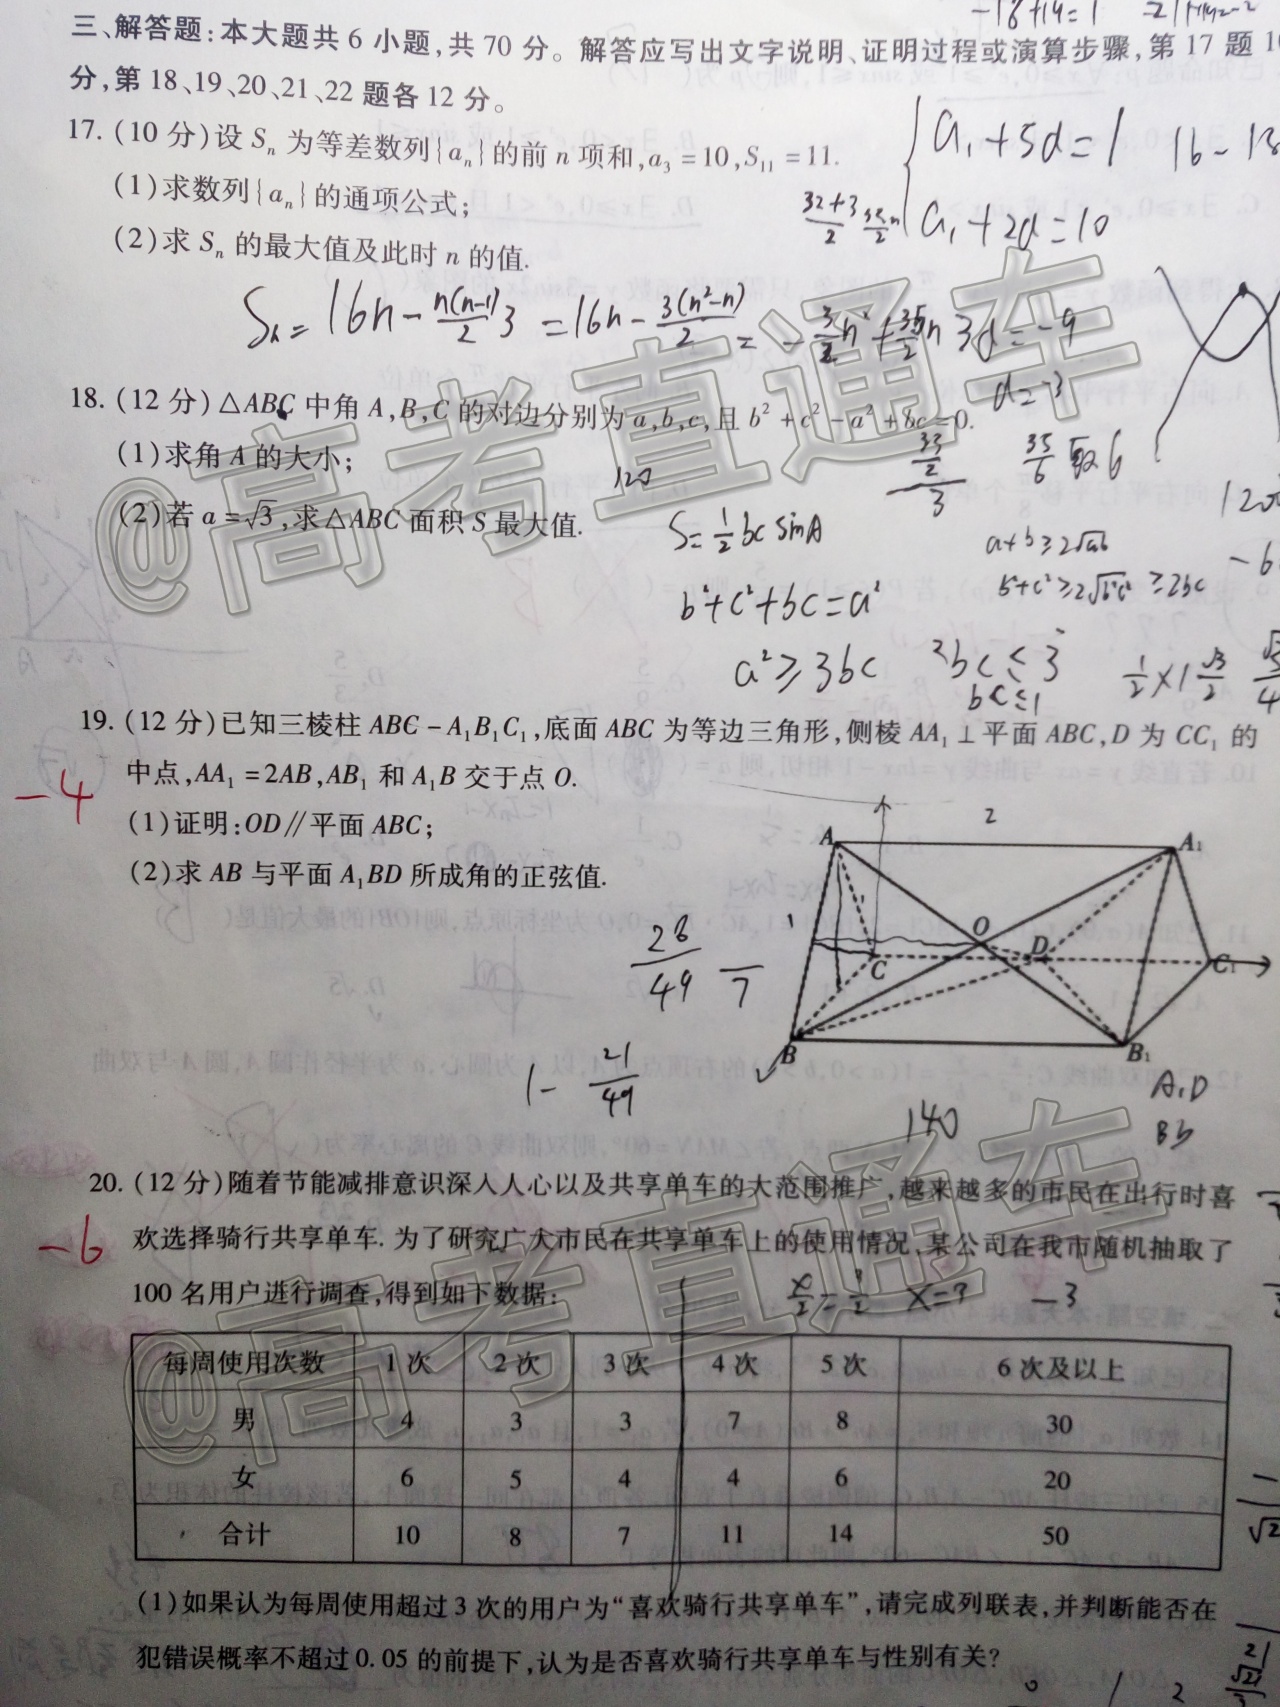 -18+19=1
三、解答题:本大题共 6 小题,共 70 分。解答应写出文字说明、证明过程或演算步骤,第 17 题 10
分,第 18、19、20、21、22 题各 12 分。
17. (10 分)设 Sₙ 为等差数列{aₙ}的前 n 项和,a₃=10,S₁₁=11.
(1)求数列{aₙ}的通项公式;
(2)求 Sₙ 的最大值及此时 n 的值.
a₁+5d=1
a₁+2d=10
Sₙ=16n-n(n-1)/2 3=16n-3(n²-n)/2=-3/2n²+35/2n
3d=-9
d=-3
18. (12 分)△ABC 中角 A,B,C 的对边分别为 a,b,c,且 b²+c²-a²+bc=0.
(1)求角 A 的大小;
120
35/6 取 6
(2)若 a=√3,求△ABC 面积 S 最大值.
S=1/2 bc sinA
a+b≥2√ab
b²+c²≥2√b²c²≥2bc
b²+c²+bc=a²
a²≥3bc
3bc≤3
bc≤1
1/2×1 √3/2
√3/4
19. (12 分)已知三棱柱 ABC-A₁B₁C₁,底面 ABC 为等边三角形,侧棱 AA₁⊥平面 ABC,D 为 CC₁ 的
中点,AA₁=2AB,AB₁ 和 A₁B 交于点 O.
-4
(1)证明:OD∥平面 ABC;
(2)求 AB 与平面 A₁BD 所成角的正弦值.
2
A
A₁
1
O
D
C
C₁
B
B₁
28/49
7
1-21/49
140
A₁D
20. (12 分)随着节能减排意识深入人心以及共享单车的大范围推广,越来越多的市民在出行时喜
-6
欢选择骑行共享单车. 为了研究广大市民在共享单车上的使用情况,某公司在我市随机抽取了
100 名用户进行调查,得到如下数据:
-3
每周使用次数 1 次 2 次 3 次 4 次 5 次 6 次及以上
男 4 3 3 7 8 30
女 6 5 4 4 6 20
合计 10 8 7 11 14 50
(1)如果认为每周使用超过 3 次的用户为“喜欢骑行共享单车”,请完成列联表,并判断能否在
犯错误概率不超过 0.05 的前提下,认为是否喜欢骑行共享单车与性别有关?
@高考直通车
@高考直通车